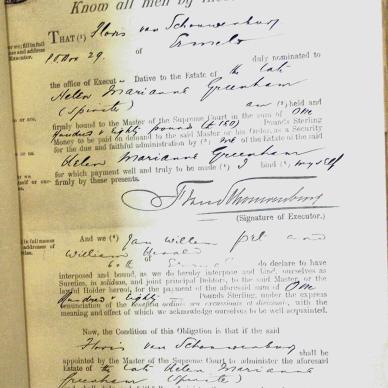 Know all men by these
THAT (¹) Floris van Schouwenburg
P.O. Box 29. of Ermelo
duly nominated to
the office of Execut Dative to the Estate of the late
Helen Marianne Greenham
(Spinster) am (²) held and
firmly bound to the Master of the Supreme Court in the sum of One
Hundred & eighty pounds (£180) Pounds Sterling
Money to be paid on demand to the said Master or his Order, as a Security
for the due and faithful administration by me of the Estate of the said
Helen Marianne Greenham
for which payment well and truly to be made I bind myself
firmly by these presents.
(Signature of Executor.)
And we (⁴) Jan Willem and
William
both of do declare to have
interposed and bound, as we do hereby interpose and bind, ourselves as
Sureties, in solidum, and joint principal Debtors, to the said Master, or the
lawful Holder hereof, for the payment of the aforesaid sum of One
Hundred & eighty Pounds Sterling, under the express
renunciation of the
meaning and effect of which we acknowledge ourselves to be well acquainted.
Now, the Condition of this Obligation is that if the said
Floris van Schouwenburg shall be
appointed by the Master of the Supreme Court to administer the aforesaid
Estate of the late Helen Marianne
Greenham (Spinster)